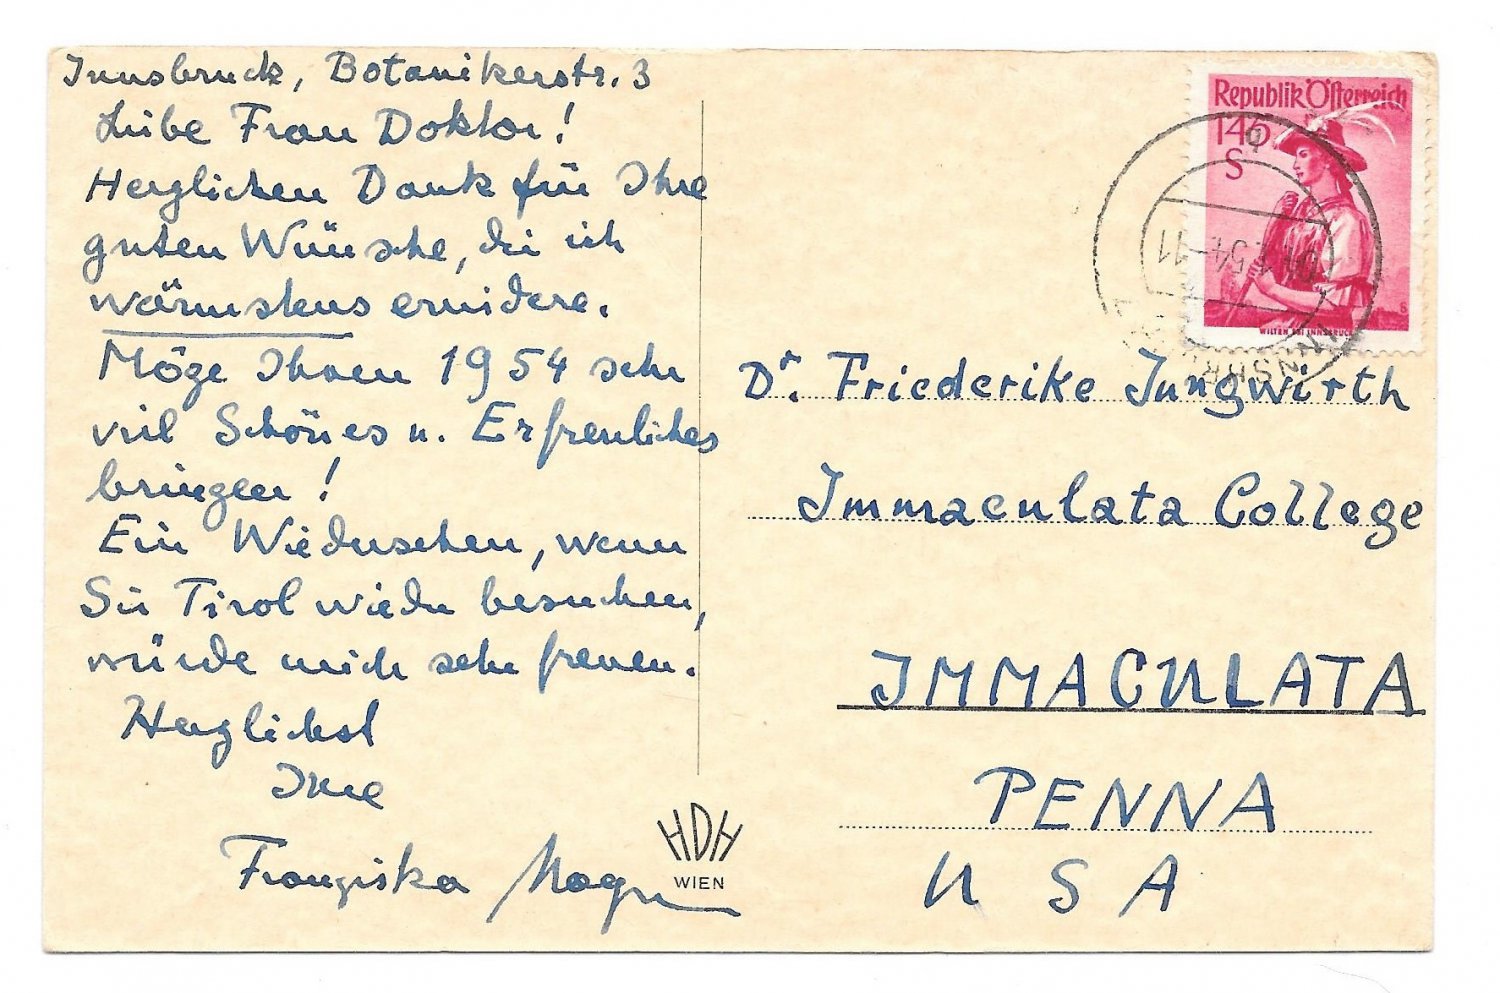 Innsbruck, Botanikerstr. 3
Liebe Frau Doktor!
Herzlichen Dank für Ihre
guten Wünsche, die ich
wärmstens erwidere.
Möge Ihnen 1954 sehr
viel Schönes u. Erfreuliches
bringen!
Ein Wiedersehen, wenn
Sie Tirol wieder besuchen,
würde mich sehr freuen.
Herzlichst
Ihre
Franziska
HDH
WIEN
Republik Österreich
1.45
S
WILTEN BEI INNSBRUCK
Dr. Friederike Jungwirth
Immaculata College
IMMACULATA
PENNA
USA